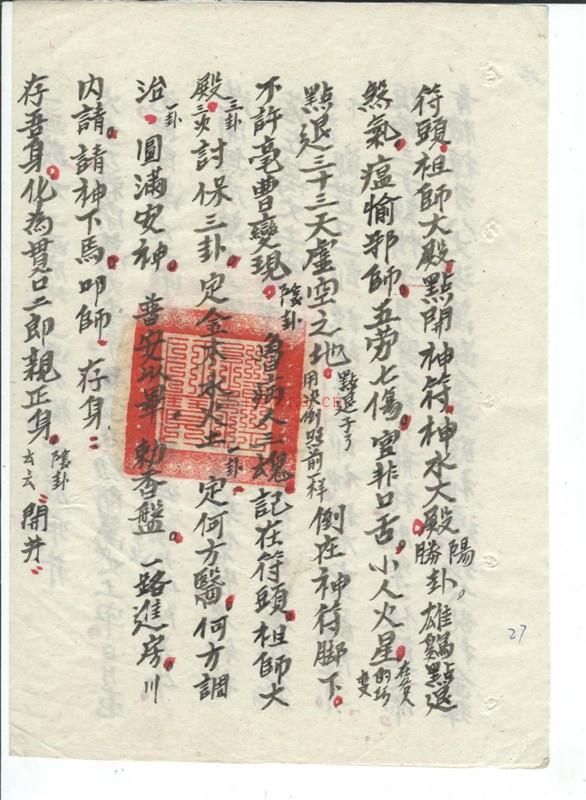 符頭祖師大殿。點開神符神水大殿。陽勝卦。雄鷄點退
煞氣。瘟㾔邪師。五劳七傷。官非口舌。小人火星。
點退三十三天虛空之地。用決倒照前一样 倒在神符脚下。
不許毫曹變現。陰卦 病人三魂 記在符頭。祖師大
殿。三卦 三次 討保三卦。定金木水火土。一卦 定何方醫。何方調
治。一卦 圓满安神。普安以畢 勅香盤。一路進房。川
内請。請神下馬。叩師。存身。
存吾身。化為貫口二郎親正身。陰卦 云云 開井
27